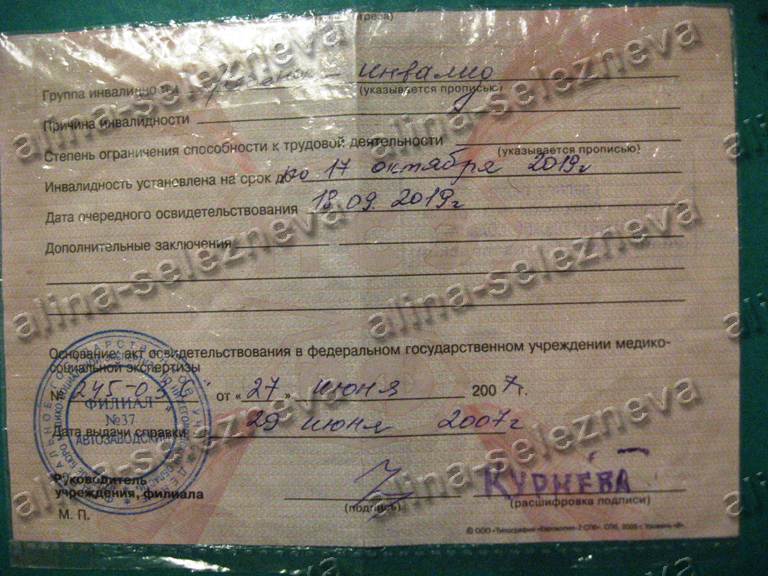 отреза)
Группа инвалидности ребенок - инвалид
(указывается прописью)
Причина инвалидности
Степень ограничения способности к трудовой деятельности
(указывается прописью)
Инвалидность установлена на срок до по 17 октября 2019г
Дата очередного освидетельствования 18.09.2019г
Дополнительные заключения
Основание: акт освидетельствования в федеральном государственном учреждении медико-
социальной экспертизы
№ 245- от «27» июня 2007г.
Дата выдачи справки 29 июня 2007г
ФИЛИАЛ
№37
АВТОЗАВОДСКИЙ
Руководитель
учреждения, филиала КУРНЕВА
(подпись) (расшифровка подписи)
М. П.
alina-selezneva
alina-selezneva
alina-selezneva
alina-selezneva
alina-selezneva
alina-selezneva
alina-selezneva
alina-selezneva